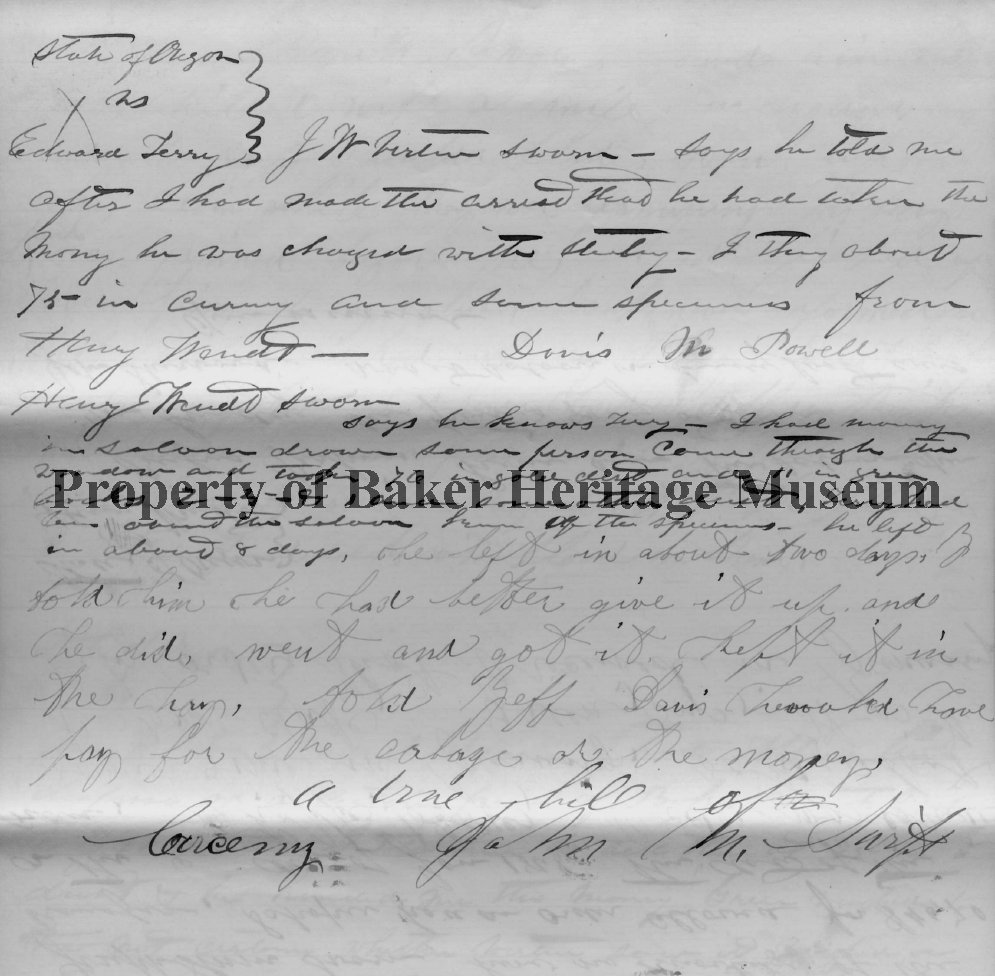 State of Oregon
vs
Edward Terry J W Virtue sworn – says he told me
after I had made the arrest that he had taken the
Mony he was charged with – I they about
75 in and some specimens from
Henry Wendt – Davis M Powell
Henry Wendt sworn
says he knows Terry – I had mony
in saloon drawer some person Came through the
window and in gold dust and in green
Property of Baker Heritage Museum
around the saloon of the specimens – he left
in about 8 days, he left in about two days, I
told him he had better give it up. and
he did, went and got it. kept it in
the hay, told Jeff Davis he would have
pay for the or the money,
a true bill of the
Larceny John M.